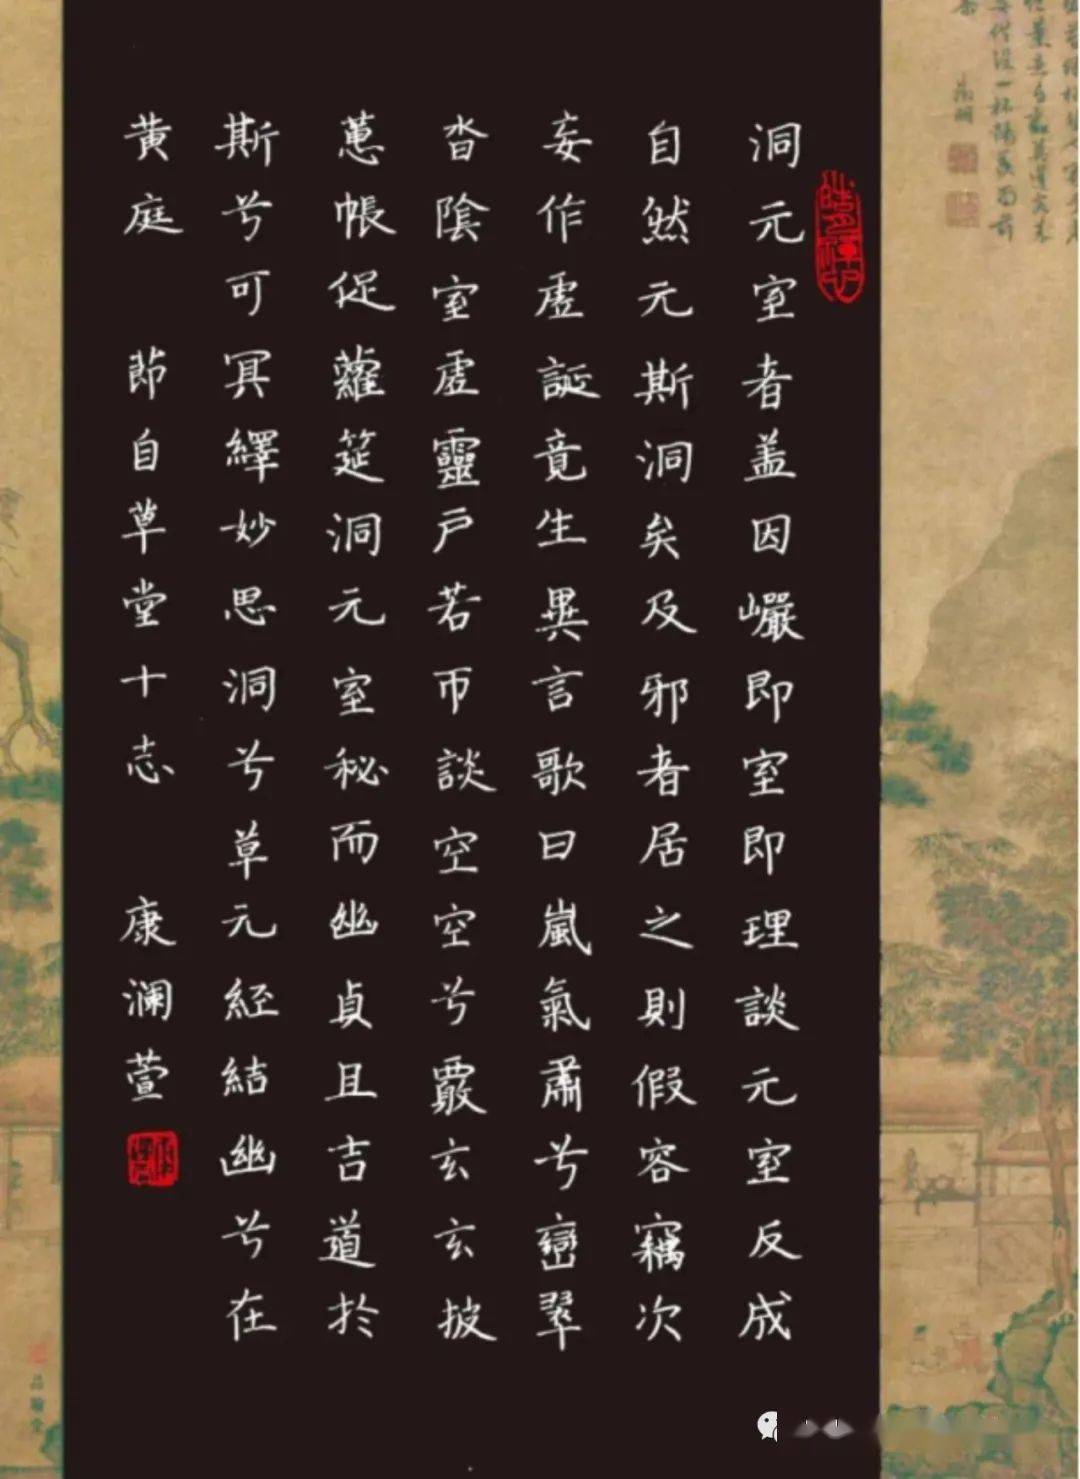 洞元室者盖因巖即室即理談元室反成
自然元斯洞矣及邪者居之則假容竊次
妄作虛誕竟生異言歌曰嵐氣肅兮巒翠
沓陰室虛靈戶若帀談空空兮覈玄玄披
蕙帳促蘿筵洞元室秘而幽貞且吉道於
斯兮可冥繹妙思洞兮草元經結幽兮在
黄庭 節自草堂十志 康澜萱